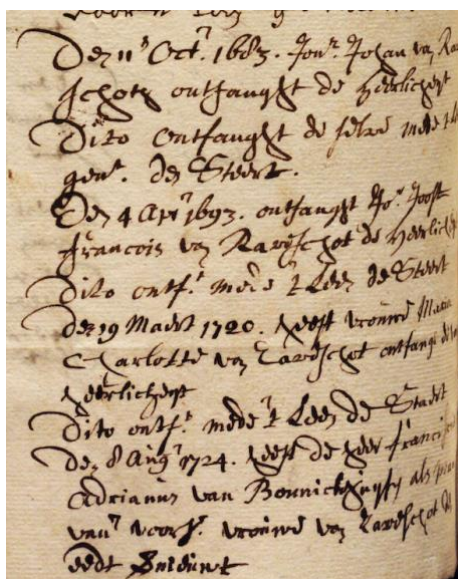 Den 11e Octr. 1683. Jonr. Johan van Ra
schott ontfanght de heerlicheyt
Dito ontfanght de selve mede t L
gent. den Steert.
Den 4 Apr 1693. ontfangt Jor. Joost
francois van Ravesschot de heerlich
Dito ontf. mede 't Leen de Steert
den 19 Maert 1720. heeft vrouwe Maria
Charlotte van Ravesschot ontfange de
heerlicheyt
Dito ontf. mede 't Leen de Staert
den 8 Augt 1724. heeft de heer francis
Adrianus van Bonnickhuysen als
van voors. vrouwe van Ravesschot de
eedt